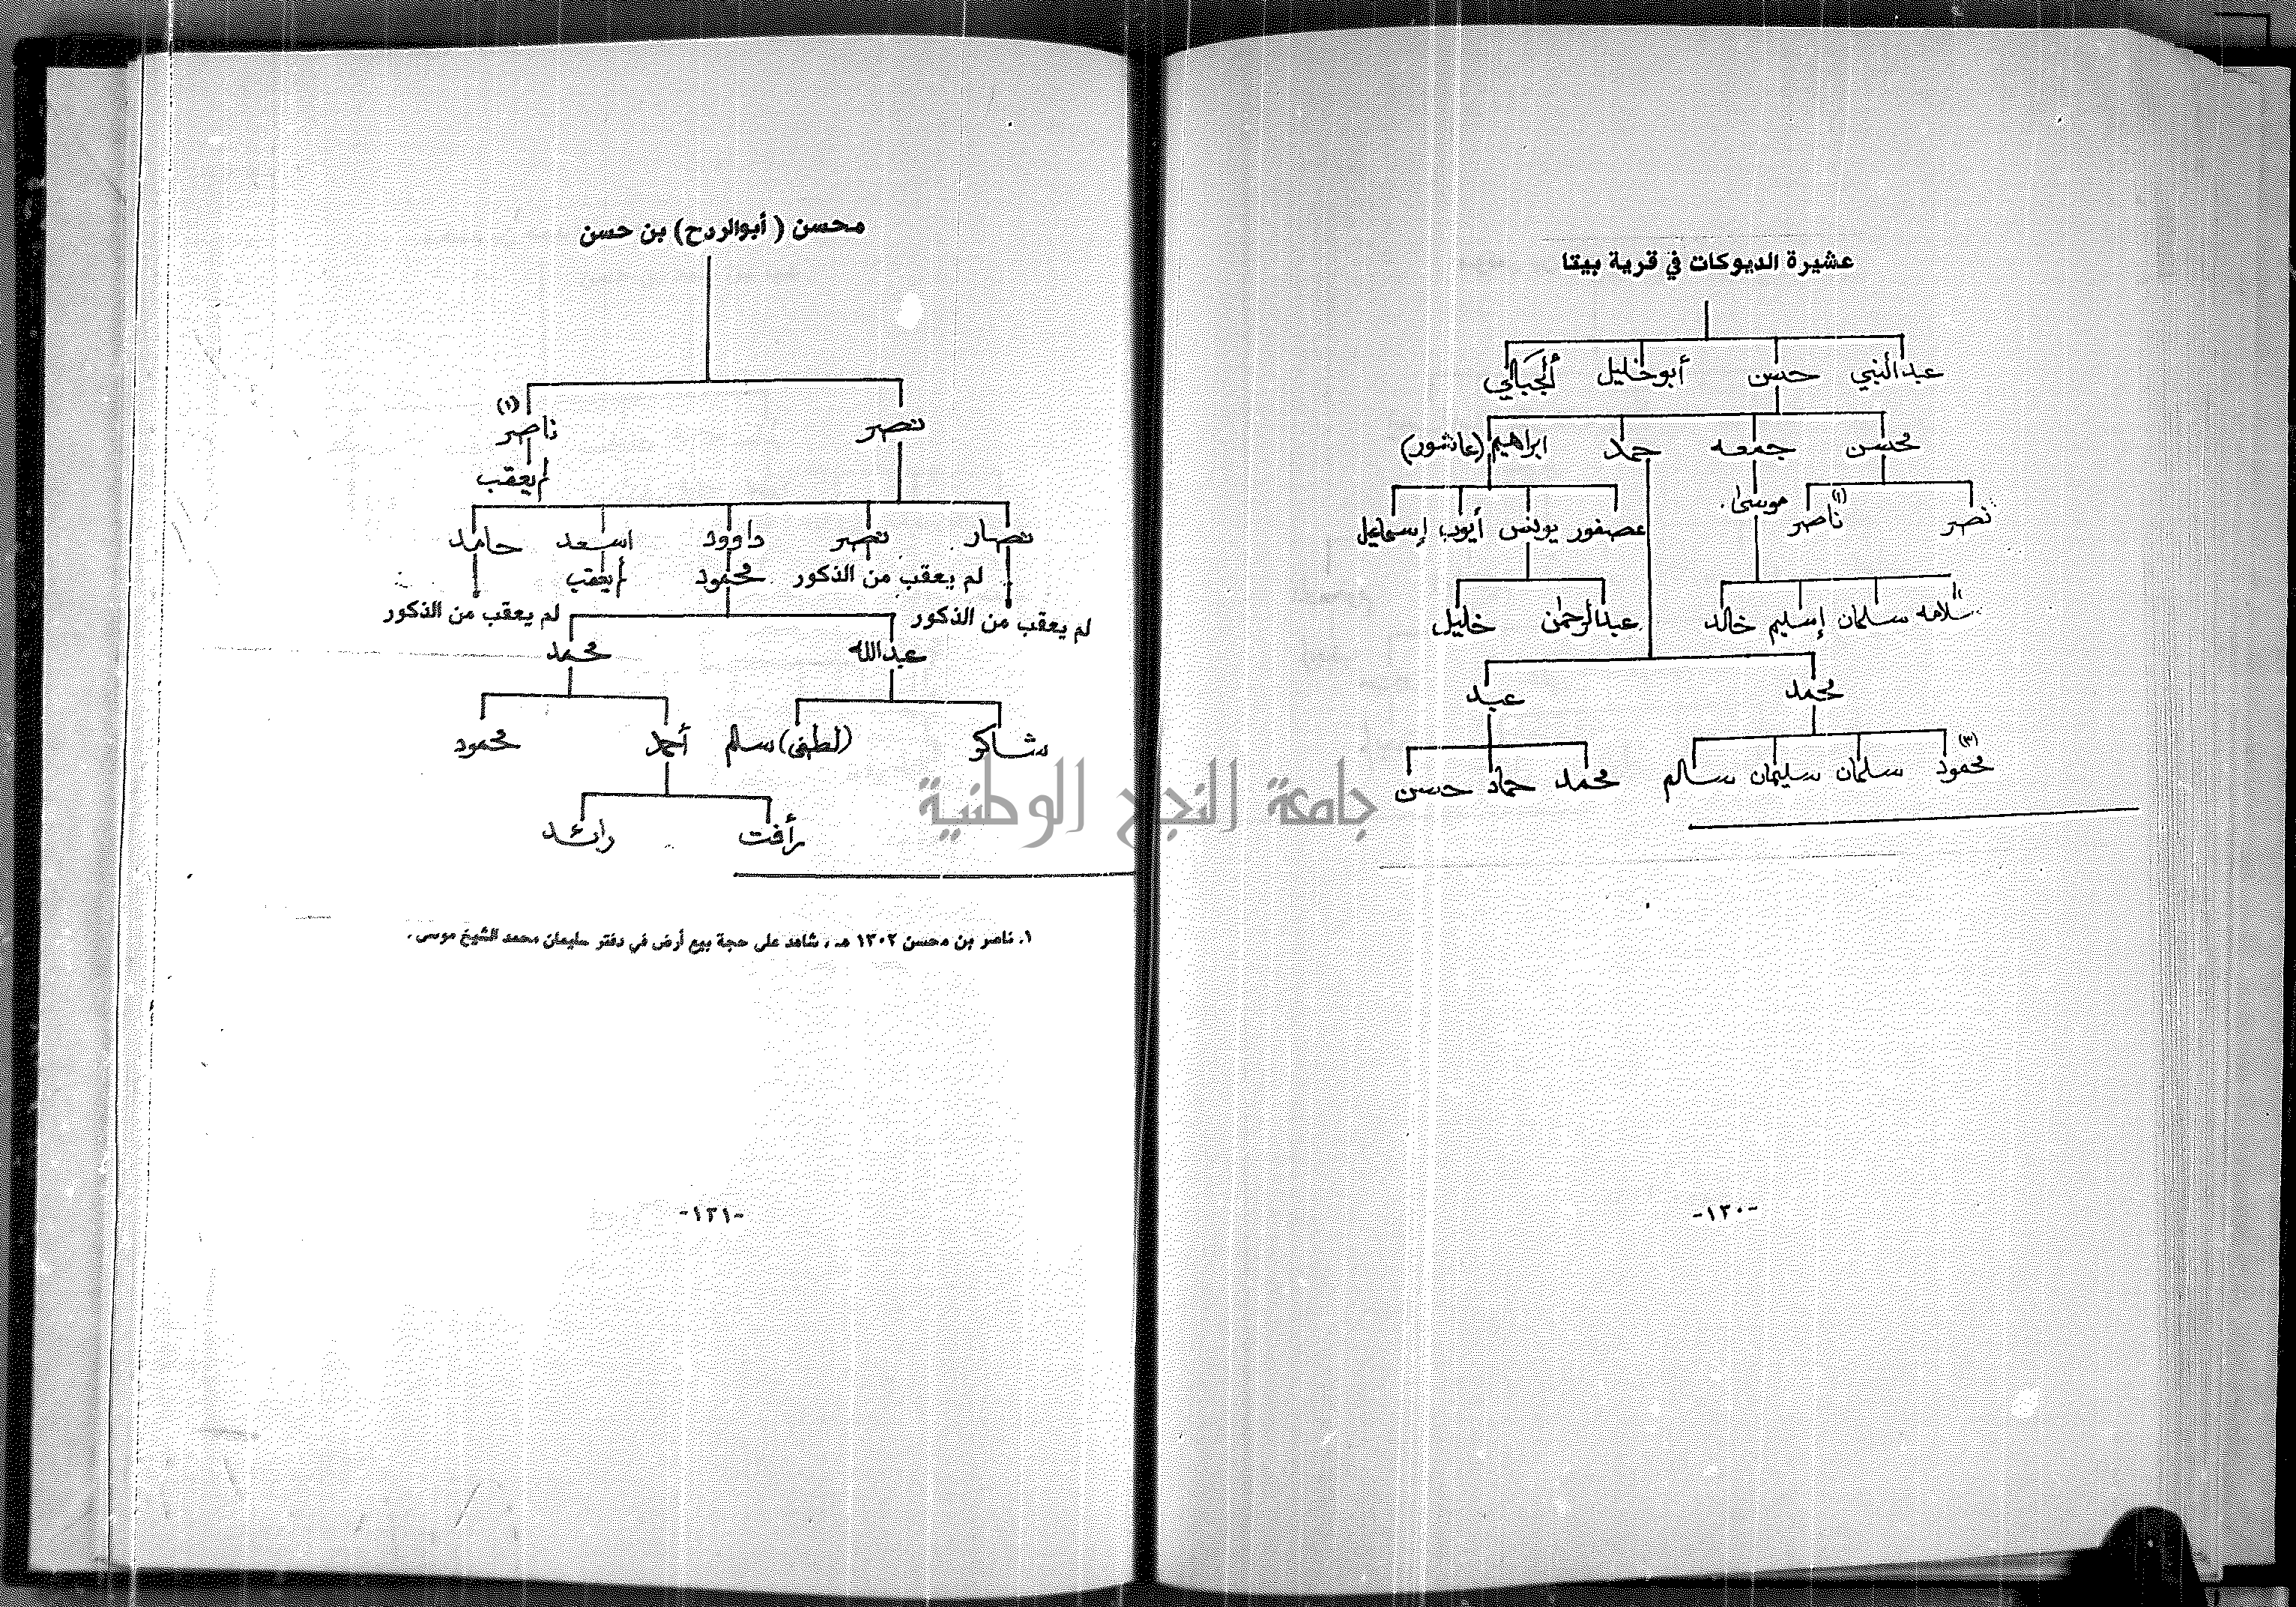 عشيرة الديوكات في قرية بيتا
عبدالنبي حسن أبوخليل الجبالي
محسن جمعه حمد ابراهيم (عاشور)
نصر ناصر (١) موسى عصفور يونس أيوب إسماعيل
سلامه سلمان إسليم خالد عبدالرحمن خليل
محمد عبد
محمود (٣) سلمان سليمان سالم محمد حماد حسن
-١٣٠-
محسن (أبوالردح) بن حسن
نصر ناصر (١)
لم يعقب
نصار نصر داوود اسعد حامد
لم يعقب من الذكور محمود لم يعقب
لم يعقب من الذكور لم يعقب من الذكور
عبدالله محمد
شاكر (لطفي) سالم أحمد محمود
رأفت رائد
١. ناصر بن محسن ١٣٠٢ هـ ، شاهد على حجة بيع أرض في دفتر سليمان محمد الشيخ موسى .
-١٣١-
جامعة النجاح الوطنية